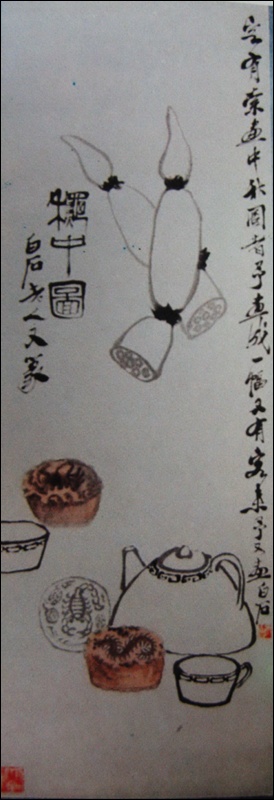 客有索畫中秋圖者予畫成一幅又有客予又畫白石
龝中圖
白石老人又篆